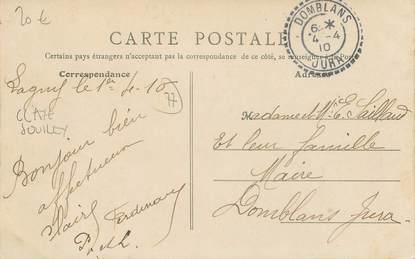 20 €
DOMBLANS
6 *
4 - 4
10
JURA
CARTE POSTALE
Certains pays étrangers n'acceptant pas la correspondance de ce côté, se renseigner à la Poste
Correspondance
Adresse
Lagny le 1er 4-10
77
Bonjour bien
affectueux
Claire Ferdinand
Madame et Mr E. Saillard
Et leur famille
Maire
Domblans Jura